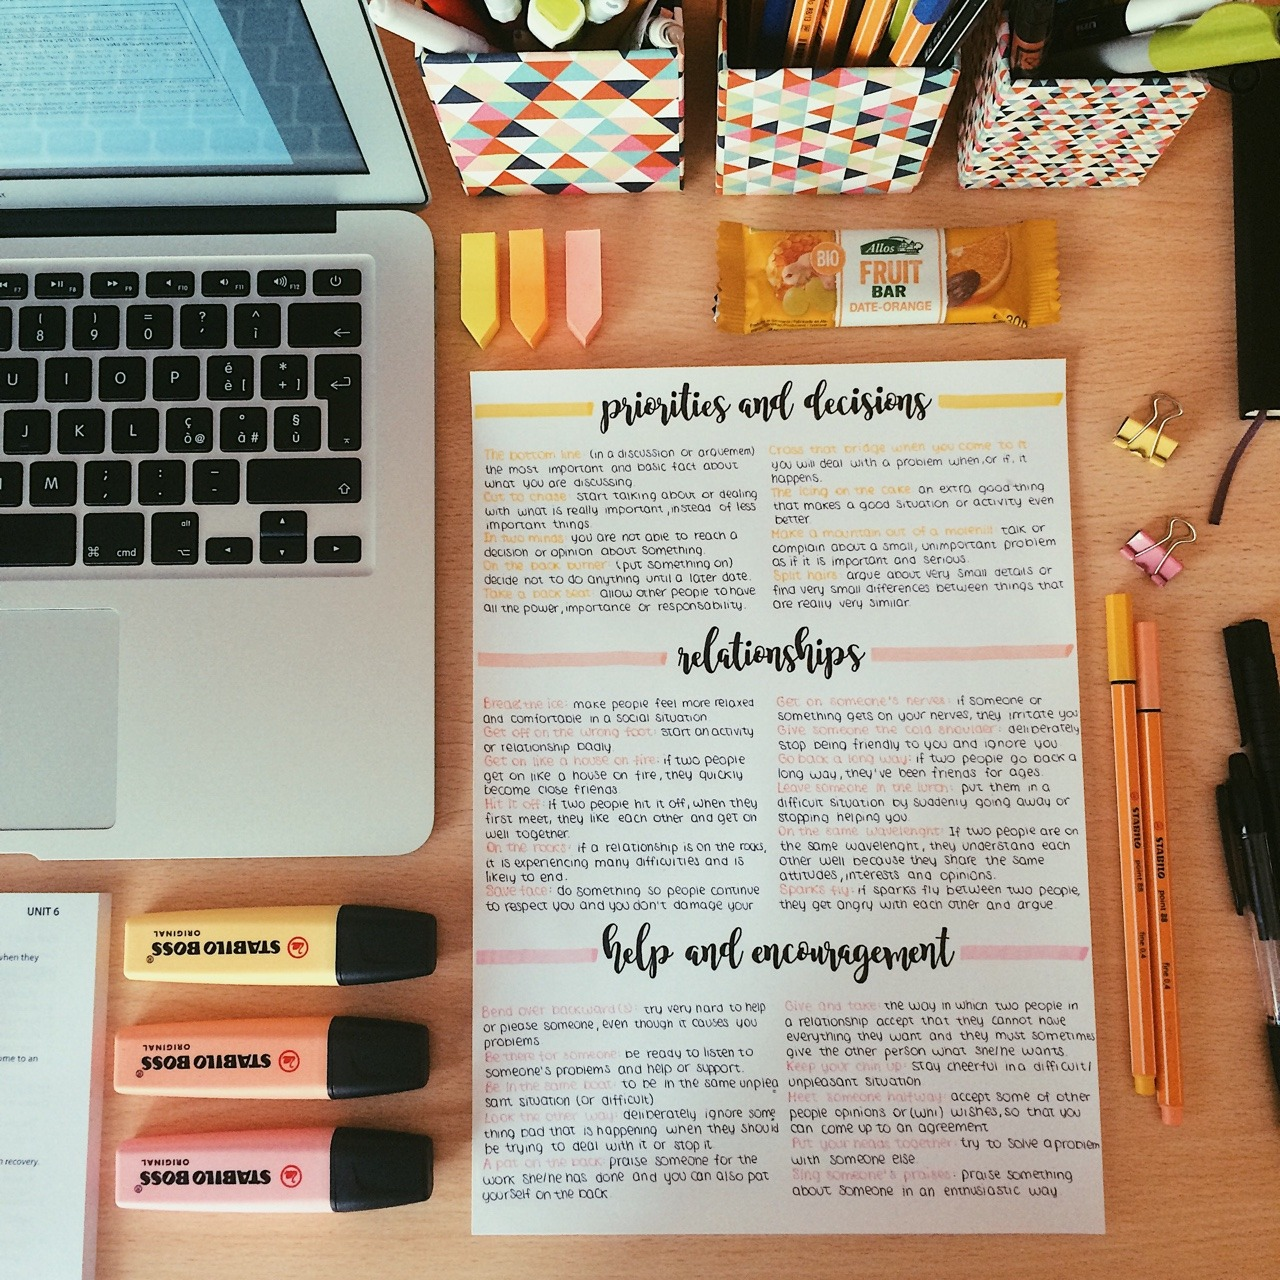 F7 F8 F9 F10 F11 F12
( 8 ) 9 = 0 ? ' ^ ì
U I O P é è [ * + ]
J K L ç ò @ ° à # § ù
M ; , : . _ -
alt
⌘ cmd ⌥
Allos
BIO
FRUIT
BAR
DATE-ORANGE
priorities and decisions
The bottom line: (in a discussion or arguement)
the most important and basic fact about
what you are discussing
Cut to chase: start talking about or dealing
with what is really important, instead of less
important things.
In two minds: you are not able to reach a
decision or opinion about something.
On the back burner: (put something on)
decide not to do anything until a later date.
Take a back seat: allow other people to have
all the power, importance or responsability.
Cross that bridge when you come to it
you will deal with a problem when, or if, it
happens.
The icing on the cake an extra good thing
that makes a good situation or activity even
better
Make a mountain out of a molehill: talk or
complain about a small, unimportant problem
as if it is important and serious.
Split hairs: argue about very small details or
find very small differences between things that
are really very similar
relationships
Break the ice: make people feel more relaxed
and comfortable in a social situation
Get off on the wrong foot: start an activity
or relationship badly
Get on like a house on fire: if two people
get on like a house on fire, they quickly
become close friends
Hit it off: if two people hit it off, when they
first meet, they like each other and get on
well together.
On the rocks: if a relationship is on the rocks,
it is experiencing many difficulties and is
likely to end.
Save face: do something so people continue
to respect you and you don't damage your
Get on someone's nerves: if someone or
something gets on your nerves, they irritate you
Give someone the cold shoulder: deliberately
stop being friendly to you and ignore you
Go back a long way: if two people go back a
long way, they've been friends for ages.
Leave someone in the lurch: put them in a
difficult situation by suddenly going away or
stopping helping you
On the same wavelenght: If two people are on
the same wavelenght, they understand each
other well because they share the same
attitudes, interests and opinions.
Sparks fly: if sparks fly between two people,
they get angry with each other and argue
help and encouragement
Bend over backward(s): try very hard to help
or please someone, even though it causes you
problems
Be there for someone: be ready to listen to
someone's problems and help or support.
Be in the same boat: to be in the same unplea
sant situation (or difficult)
Look the other way: deliberately ignore some
thing bad that is happening when they should
be trying to deal with it or stop it
A pat on the back: praise someone for the
work she/he has done and you can also pat
yourself on the back
Give and take: the way in which two people in
a relationship accept that they cannot have
everything they want and they must sometimes
give the other person what she/he wants.
Keep your chin up: stay cheerful in a difficult/
unpleasant situation
Meet someone halfway: accept some of other
people opinions or (wni) wishes, so that you
can come up to an agreement
Put your heads together: try to solve a problem
with someone else
Sing someone's praises: praise something
about someone in an enthusiastic way.
STABILO point 88 fine 0.4
STABILO point 88 fine 0.4
UNIT 6
when they
ome to an
n recovery.
STABILO BOSS
ORIGINAL
STABILO BOSS
ORIGINAL
STABILO BOSS
ORIGINAL